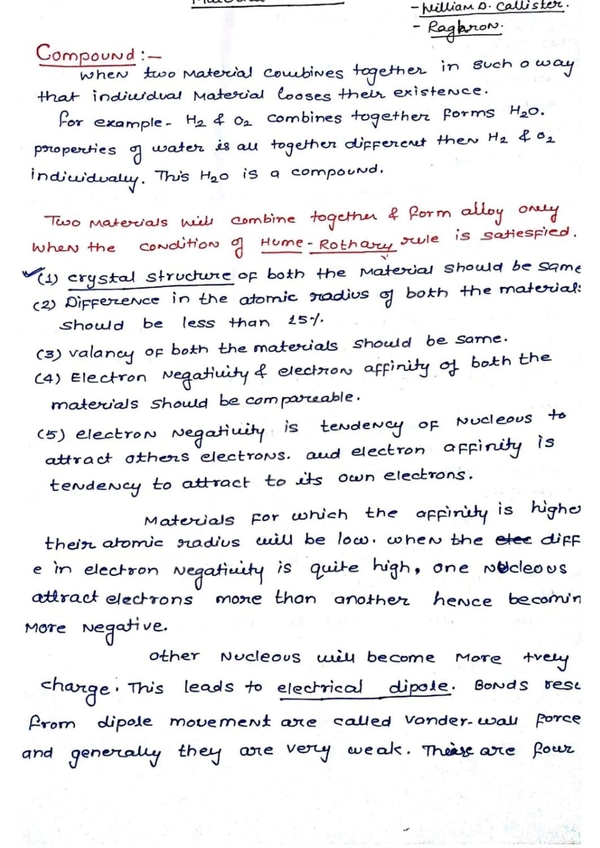 - William D. Callister.
- Raghron.
Compound :-
when two Material combines together in such a way
that individual Material looses their existence.
for example - H2 & O2 combines together forms H2O.
properties of water is all together different then H2 & O2
individually. This H2O is a compound.
Two Materials will combine together & form alloy only
when the condition of Hume-Rothary rule is satiesfied.
(1) crystal structure of both the Material should be same
(2) Difference in the atomic radius of both the material:
should be less than 15%.
(3) valancy of both the materials should be same.
(4) Electron Negativity & electron affinity of both the
materials should be compareable.
(5) electron Negativity is tendency of Nucleous to
attract others electrons. and electron affinity is
tendency to attract to its own electrons.
Materials for which the affinity is highe
their atomic radius will be low. when the elec diff
e in electron Negativity is quite high, one Nucleous
attract electrons more than another hence becomin
More Negative.
Other Nucleous will become More +vely
charge. This leads to electrical dipole. Bonds resu
from dipole movement are called Vander-wall force
and generally they are very weak. These are four